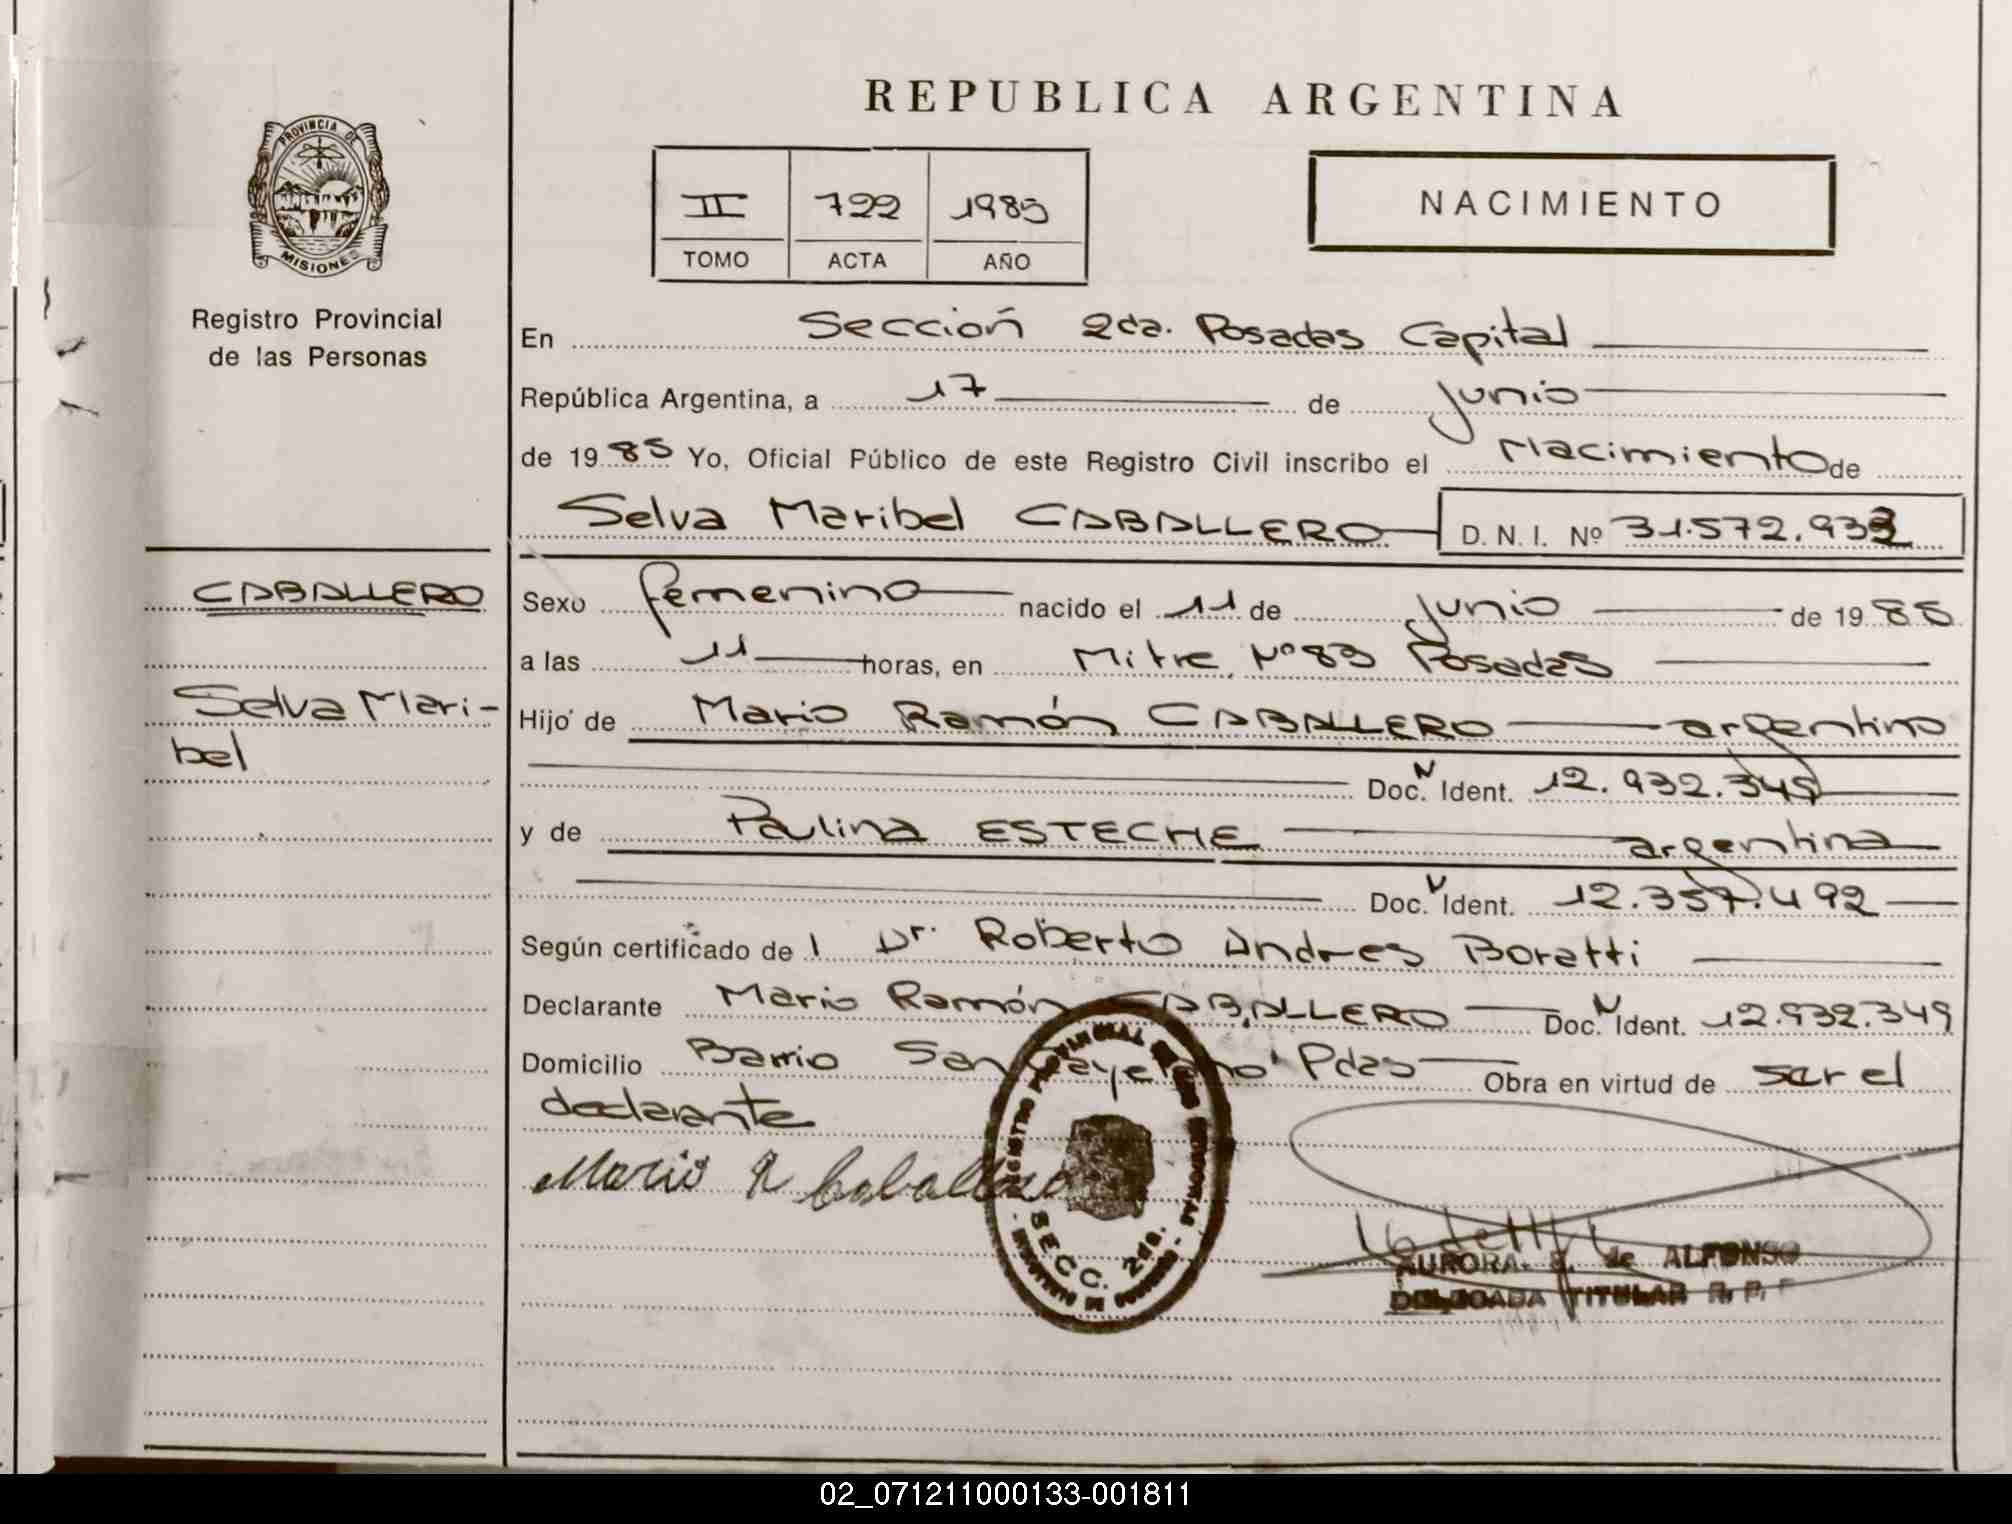 REPUBLICA ARGENTINA
PROVINCIA DE
MISIONES
II 722 1985
TOMO ACTA AÑO
NACIMIENTO
Registro Provincial
de las Personas
En Sección 2da. Posadas Capital
República Argentina, a 17 de Junio
de 1985 Yo, Oficial Público de este Registro Civil inscribo el Nacimiento de
Selva Maribel CABALLERO D. N. I. Nº 31.572.932
CABALLERO
Selva Mari-
bel
Sexo femenino nacido el 11 de Junio de 1985
a las 11 horas, en Mitre Nº 83 Posadas
Hijo de Mario Ramón CABALLERO argentino
Doc. N Ident. 12.932.349
y de Paulina ESTECHE argentina
Doc. Ident. 12.357.492
Según certificado de l Dr. Roberto Andres Boratti
Declarante Mario Ramón CABALLERO Doc. N Ident. 12.932.349
Domicilio Barrio San Cayetano Pdas Obra en virtud de ser el
declarante
Mario R Caballero
REGISTRO PROVINCIAL DE LAS PERSONAS
SECC. 2da.
AURORA de ALFONSO
DELEGADA TITULAR R. P. P
02_071211000133-001811